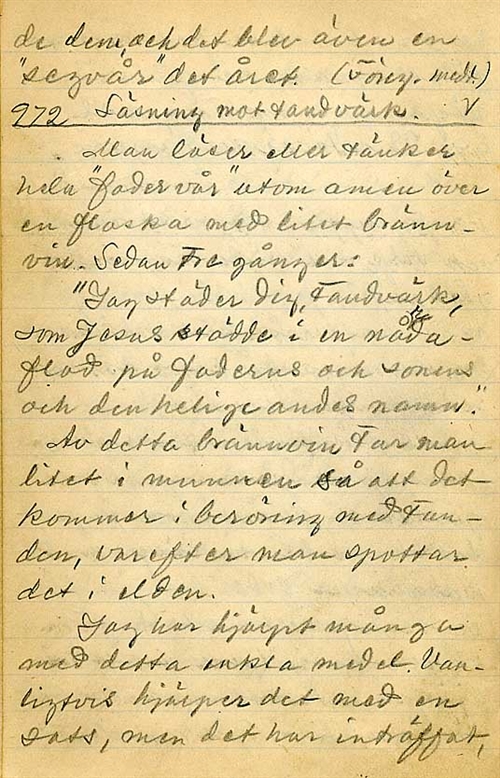 de dem, och det blev även en
"segvår" det året. (Föreg. medd.)
972 Läsning mot tandvärk. V
Man läser eller tänker
hela "fader vår" utom amen över
en flaska med litet bränn-
vin. Sedan tre gånger:
"Jag städer dig, Tandvärk,
som Jesus städde i en nåda-
flod på faderns och sonens
och den helige andes namn."
Av detta brännvin tar man
litet i munnen så att det
kommer i beröring med tan-
den, varefter man spottar
det i elden.
Jag har hjälpt många
med detta enkla medel. Van-
ligtvis hjälper det med en
sats, men det har inträffat,